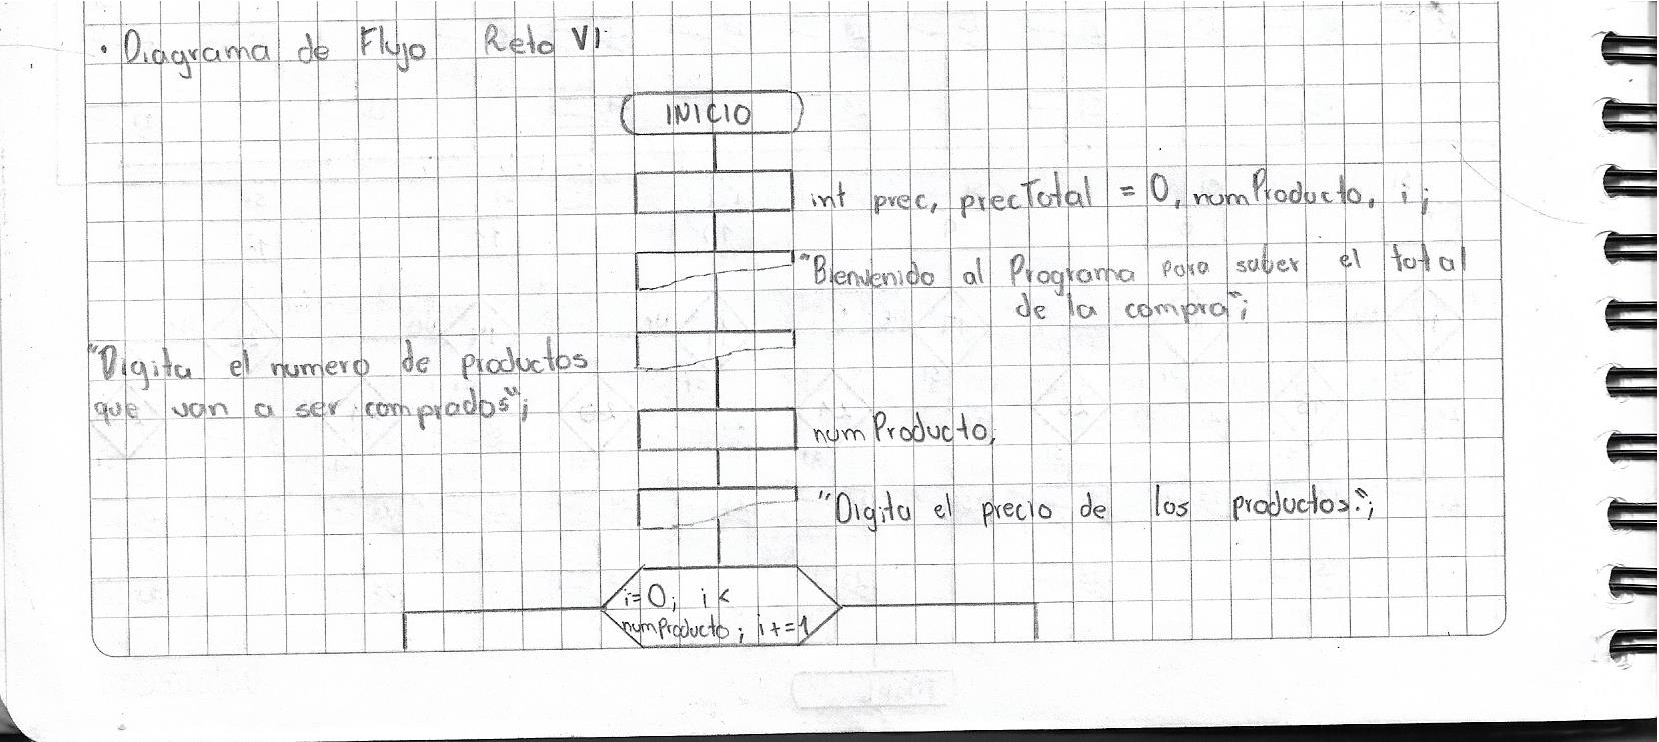 • Diagrama de Flujo Reto VI
INICIO
int prec, precTotal = 0, numProducto, i;
"Bienvenido al Programa para saber el total
de la compra";
"Digita el numero de productos
que van a ser comprados";
numProducto;
"Digita el precio de los productos:";
i=0; i<
numProducto; i+=1